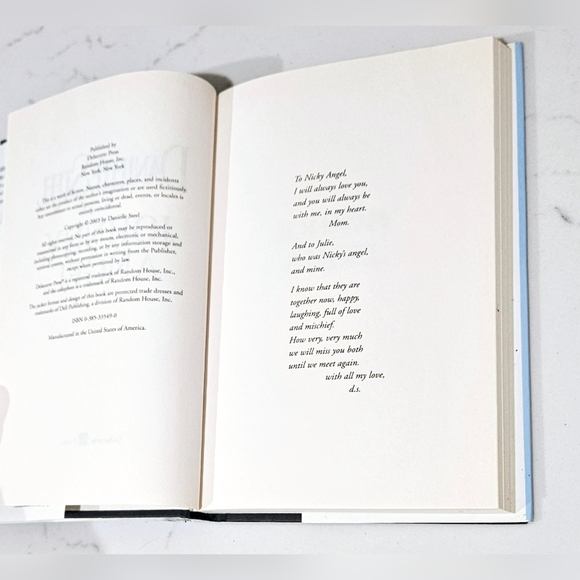 Published by
Delacorte Press
Random House, Inc.
New York, New York
This is a work of fiction. Names, characters, places, and incidents
either are the product of the author's imagination or are used fictitiously.
Any resemblance to actual persons, living or dead, events, or locales is
entirely coincidental.
Copyright © 2003 by Danielle Steel
All rights reserved. No part of this book may be reproduced or
transmitted in any form or by any means, electronic or mechanical,
including photocopying, recording, or by any information storage and
retrieval system, without permission in writing from the Publisher,
except where permitted by law.
Delacorte Press® is a registered trademark of Random House, Inc.,
and the colophon is a trademark of Random House, Inc.
The jacket format and design of this book are protected trade dresses and
trademarks of Dell Publishing, a division of Random House, Inc.
ISBN 0-385-33549-0
Manufactured in the United States of America.
To Nicky Angel,
I will always love you,
and you will always be
with me, in my heart.
Mom.
And to Julie,
who was Nicky's angel,
and mine.
I know that they are
together now, happy,
laughing, full of love
and mischief.
How very, very much
we will miss you both
until we meet again.
with all my love,
d.s.